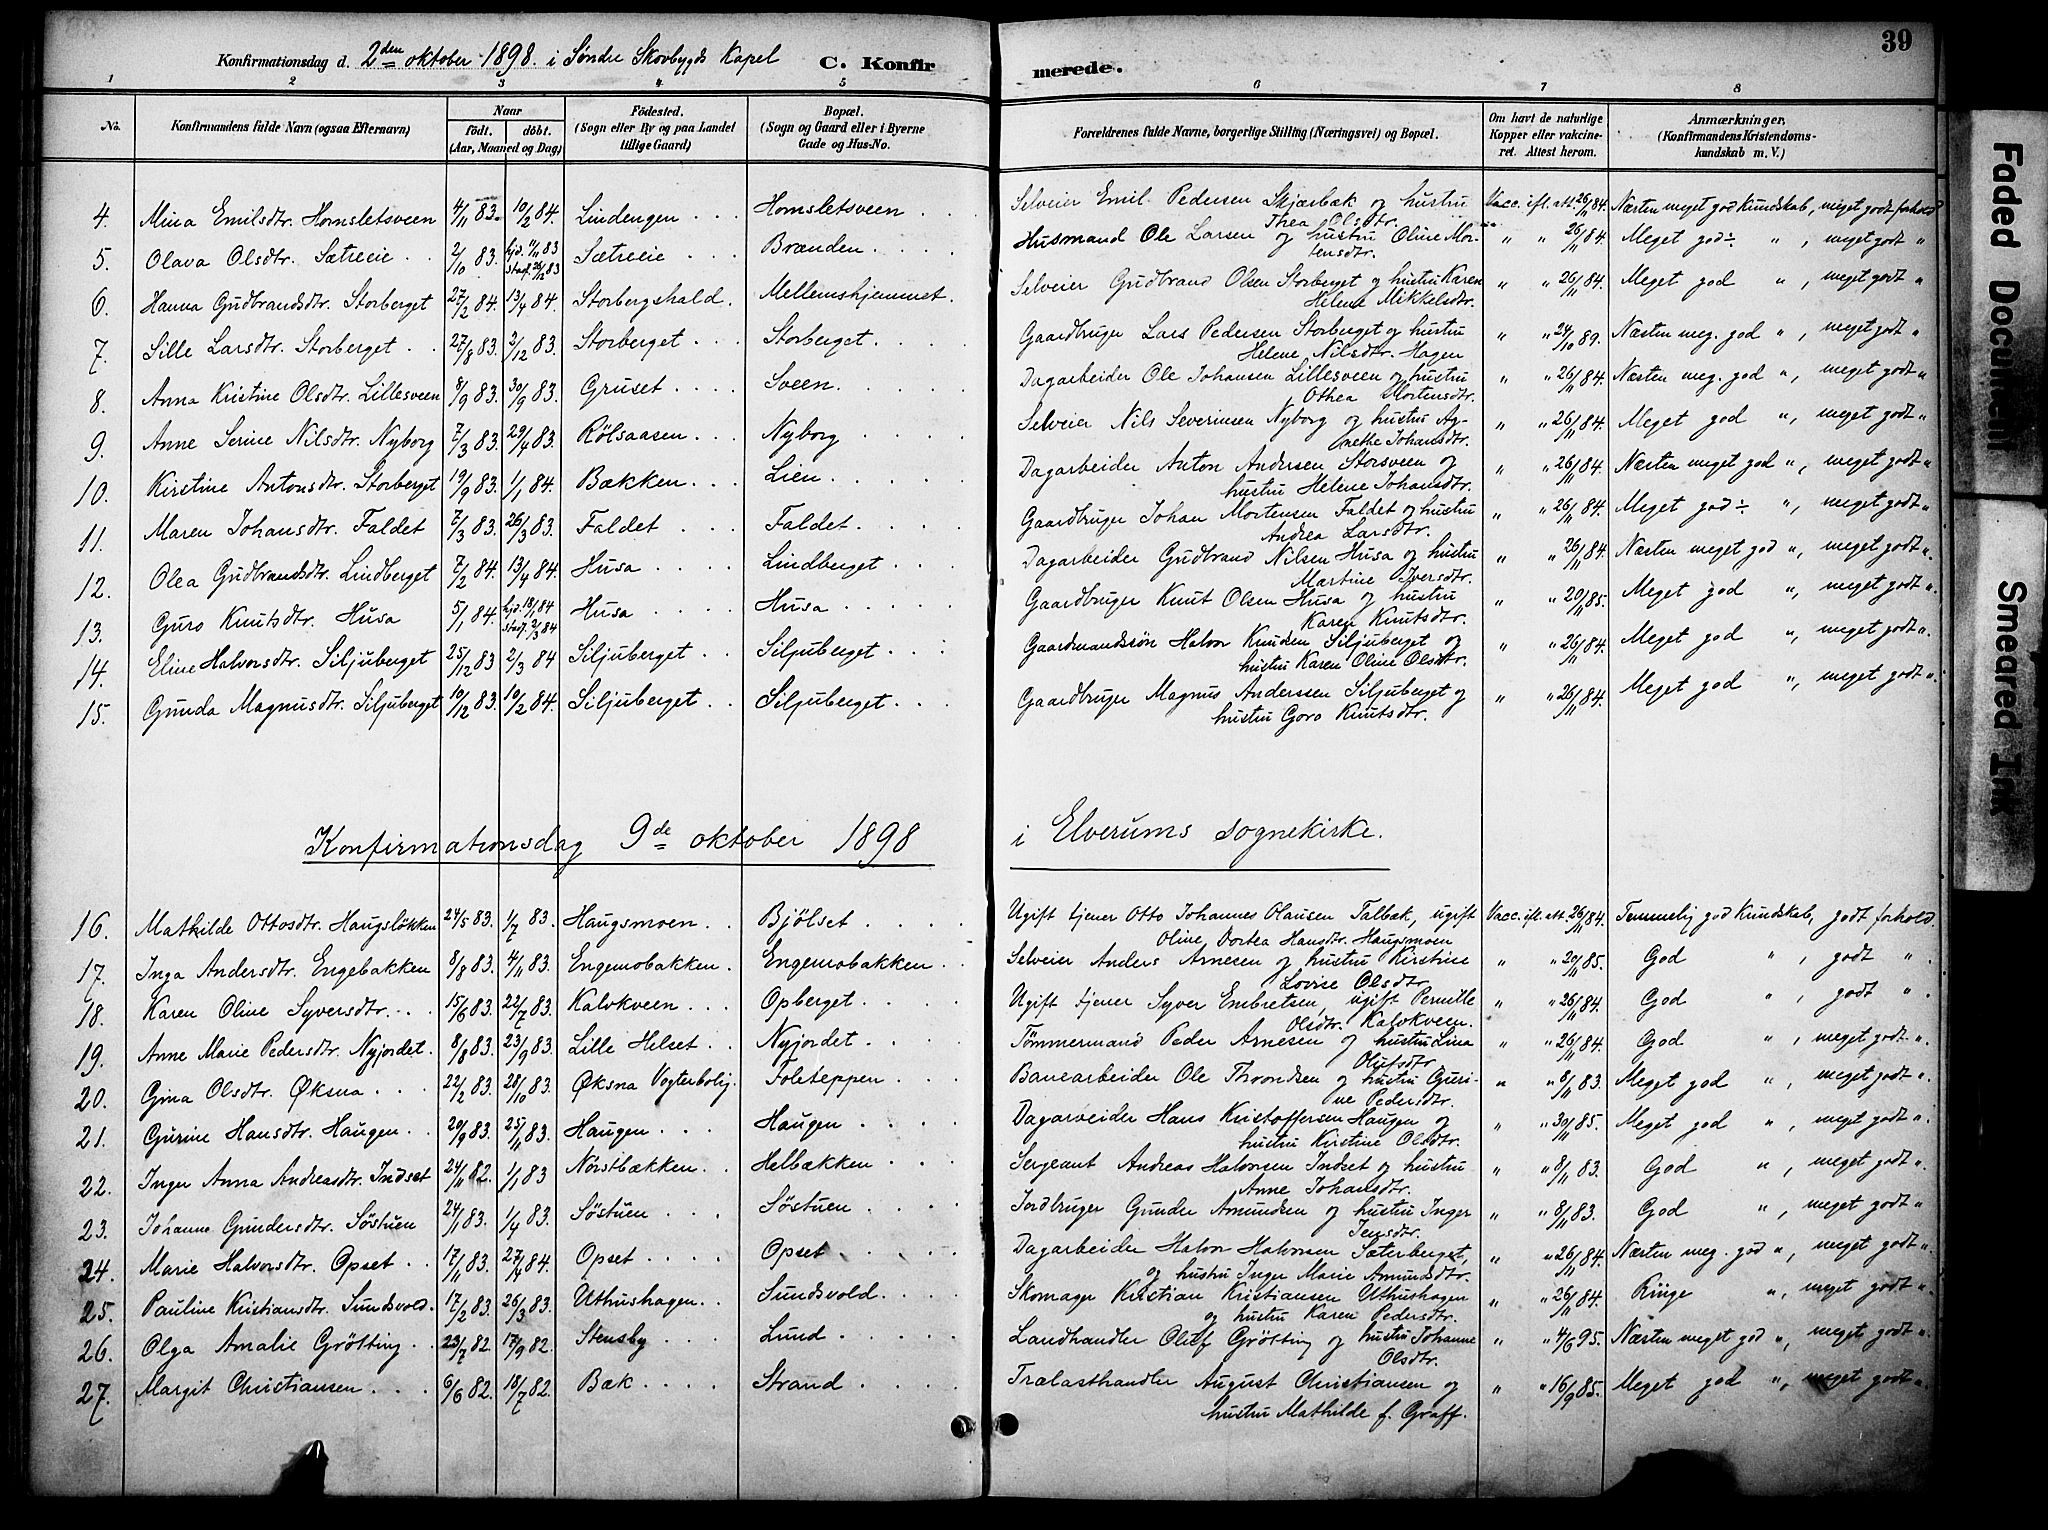 39
Konfirmationsdag d. 2den oktober 1898. i Søndre Skovbygds Kapel C. Konfirmerede.
1 2 3 4 5 6 7 8
No. Konfirmandens fulde Navn (ogsaa Efternavn) Naar født, døbt. (Aar, Maaned og Dag) Födested. (Sogn eller By og paa Landet tillige Gaard) Bopæl. (Sogn og Gaard eller i Byerne Gade og Hus-No. Forældrenes fulde Navne, borgerlige Stilling (Næringsvei) og Bopæl. Om havt de naturlige Kopper eller vakcineret. Attest herom. Anmærkninger, (Konfirmandens Kristendomskundskab m. V.)
4. Mina Emilsdtr. Homsletsveen 4/11 83. 10/2 84. Lindengen Homsletsveen Selveier Emil Pedersen Skjærbæk og hustru Thea Olsdtr. Vacc. ifl. att. 26/11 84. Næsten meget god Kundskab, meget godt forhold
5. Olava Olsdtr. Sætreeie 2/10 83. hjd. 11/11 83 stadf. 26/12 83 Sætreeie Brænden Husmand Ole Larsen og hustru Oline Mortensdtr. " " 26/11 84. Meget god÷ ", meget godt "
6. Hanna Gudbrandsdtr. Storberget 27/2 84. 13/4 84. Storbergshald. Mellemshjemmet. Selveier Gudbrand Olsen Storberget og hustru Karen Helene Mikkelsdtr. " " 26/11 84. Meget god ", meget godt "
7. Sille Larsdtr. Storberget 27/8 83. 2/12 83. Storberget Storberget Gaardbruger Lars Pedersen Storberget og hustru Helene Nilsdtr. Hagen " " 24/10 89. Næsten meg. god ", meget godt "
8. Anna Kristine Olsdtr. Lillesveen 8/9 83. 30/9 83. Gruset Sveen. Dagarbeider Ole Johansen Lillesveen og hustru Othea Mortensdtr. " " 26/11 84. Næsten meg. god ", meget godt "
9. Anne Serine Nilsdtr. Nyborg 7/3 83. 29/4 83. Rölsaasen Nyborg Selveier Nils Severinsen Nyborg og hustru Agnethe Johansdtr. " " 26/11 84. Meget god ", meget godt "
10. Kirstine Antonsdtr. Storberget 19/9 83. 1/1 84. Bækken Lien Dagarbeider Anton Andersen Storsveen og hustru Helene Johansdtr. " " 26/11 84. Næsten meget god ", meget godt "
11. Maren Johansdtr. Faldet 7/3 83. 26/3 83. Faldet Faldet Gaardbruger Johan Mortensen Faldet og hustru Andrea Larsdtr. " " 26/11 84. Meget god÷ ", meget godt "
12. Olea Gudbrandsdtr. Lindberget 7/2 84. 13/4 84. Husa Lindberget Dagarbeider Gudbrand Nilsen Husa og hustru Martine Iversdtr. " " 26/11 84. Næsten meget god ", meget godt "
13. Guro Knutsdtr. Husa 5/1 84. hjd. 18/1 84 stadf. 2/3 84 Husa Husa Gaardbruger Knut Olsen Husa og hustru Karen Knutsdtr. " " 20/11 85. Meget god ", meget godt "
14. Eline Halvorsdtr. Siljuberget 25/12 83 2/3 84 Siljuberget Siljuberget Gaardmandssön Halvor Knudsen Siljuberget og hustru Karen Oline Olsdtr. " " 26/11 84. Meget god ", meget godt "
15. Gunda Magnusdtr. Siljuberget 10/12 83. 10/2 84. Siljuberget Siljuberget Gaardbruger Magnus Anderssen Siljuberget og hustru Goro Knutsdtr. " " 26/11 84. Meget god ", meget godt "
Konfirmationsdag 9de oktober 1898 i Elverums sognekirke.
16. Mathilde Ottosdtr. Haugsløkken 24/5 83. 1/7 83. Haugsmoen Bjölset Ugift tjener Otto Johannes Olausen Talbæk, ugift Oline Dortea Hansdtr. Haugsmoen Vacc. ifl. att. 26/11 84. Temmelig god Kundskab, godt forhold.
17. Inga Andersdtr. Engebakken 8/8 83. 4/11 83. Engemobakken. Engemobakken Selveier Anders Arnesen og hustru Kirstine Lovise Olsdtr. " " 20/11 85. God ", godt "
18. Karen Oline Syversdtr. 15/6 83. 22/7 83. Kalvkveen Opberget Ugift tjener Syver Embretsen, ugift Pernille Olsdtr. Kalvkveen. " " 26/11 84. God ", godt "
19. Anne Marie Pedersdtr. Nyjordet. 8/8 83. 23/9 83. Lille Helset Nyjordet Tömmermand Peder Arnesen og hustru Lina Olufsdtr. " " 26/11 84. God ", meget godt "
20. Gina Olsdtr. Øksna 22/2 83. 28/10 83. Øksna Vogterbolig. Toleteppen Banearbeider Ole Throndsen og hustru Gurine Pedersdtr. " " 8/11 83. Meget god ", meget godt "
21. Gurine Hansdtr. Haugen 20/9 83. 25/11 83. Haugen Haugen Dagarbeider Hans Kristoffersen Haugen og hustru Kirstine Olsdtr. " " 30/11 85. Meget god ", meget godt "
22. Inger Anna Andreasdtr. Indset 24/11 82. 1/1 83 Nørstbækken Helbækken Sergeant Andreas Halvorsen Indset og hustru Anne Johansdtr. " " 8/11 83. God ", meget godt "
23. Johanne Gundersdtr. Söstuen 24/1 83. 1/4 83. Söstuen Söstuen Jordbruger Gunder Amundsen og hustru Inger Jensdtr. " " 8/11 83. God ", meget godt "
24. Marie Halvorsdtr. Opset 17/11 83. 27/4 84. Opset Opset Dagarbeider Halvor Halvorsen Sæterberget, og hustru Inger Marie Amundsdtr. " " 26/11 84. Næsten meg. god ", meget godt "
25. Pauline Kristiansdtr. Sundsvold. 17/2 83. 26/3 83. Uthushagen Sundsvold Skomager Kristian Kristiansen Uthushagen og hustru Karen Pedersdtr. " " 26/11 84. Ringe ", meget godt "
26. Olga Amalie Grötting 23/7 82. 17/9 82. Stensby Lund Landhandler Oluf Grötting og hustru Johanne Olsdtr. " " 4/6 95. Næsten meget god ", meget godt "
27. Margit Christiansen 6/6 82. 18/7 82. Bæk Strand Trælasthandler August Christiansen og hustru Mathilde f. Graff. " " 16/9 85. Meget god ", meget godt "
Faded Document
Smeared Ink